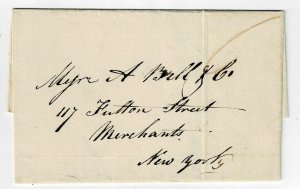 Myre A Bell & Co
117 Fulton Street
Merchants
New York